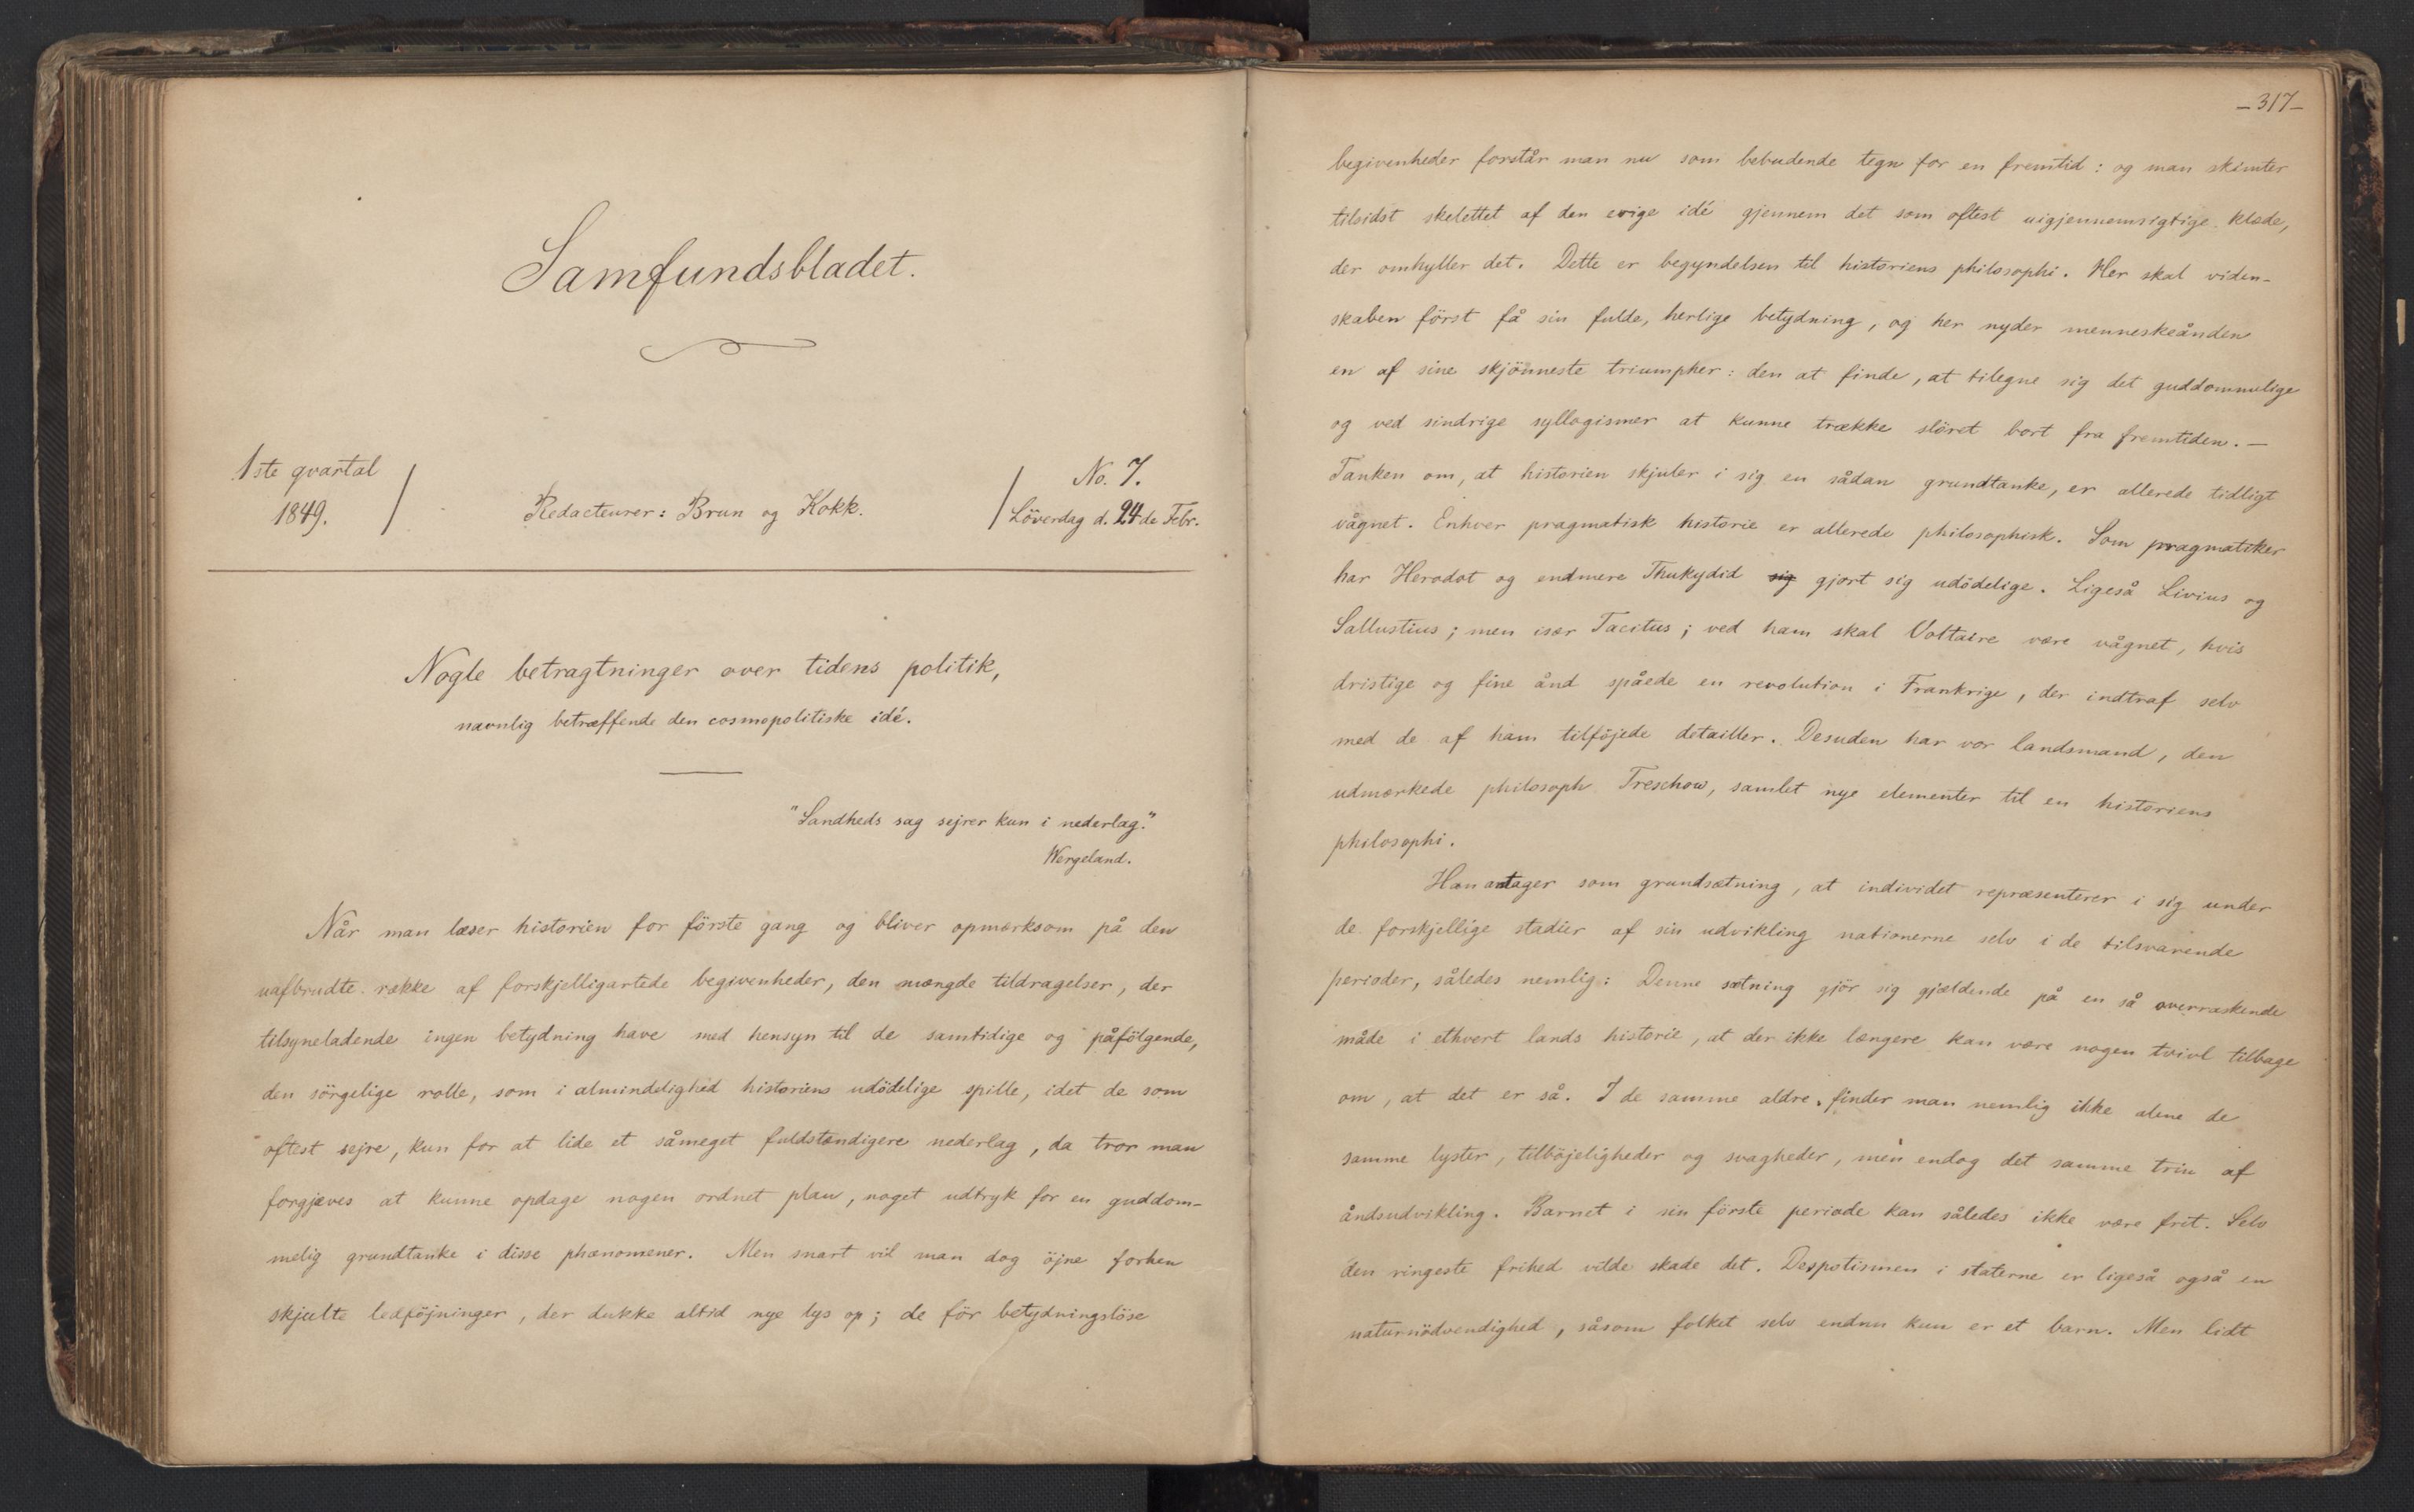 Samfundsbladet.
1ste qvartal
1849.
Redacteurer: Brun og Kokk.
No. 7.
Löverdag d. 24de Febr.
Nogle betragtninger over tidens politik,
navnlig betræffende den cosmopolitiske idé.
"Sandheds sag sejrer kun i nederlag."
Wergeland.
Når man læser historien for förste gang og bliver opmærksom på den
uafbrudte række af forskjelligartede begivenheder, den mængde tildragelser, der
tilsyneladende ingen betydning have med hensyn til de samtidige og påfölgende,
den sörgelige rolle, som i almindelighed historiens udödelige spille, idet de som
oftest sejre, kun for at lide et såmeget fuldstændigere nederlag, da tror man
forgjæves at kunne opdage nogen ordnet plan, noget udtryk for en guddom-
melig grundtanke i disse phænomener. Men snart vil man dog öjne forhen
skjulte ledföjninger, der dukke altid nye lys op; de för betydningslöse
-317-
begivenheder forstår man nu som bebudende tegn for en fremtid: og man skimter
tilsidst skelettet af den evige idé gjennem det som oftest uigjennemsigtige klæde,
der omhyller det. Dette er begyndelsen til historiens philosophi. Her skal viden-
skaben först få sin fulde, herlige betydning, og her nyder menneskeånden
en af sine skjönneste triumpher: den at finde, at tilegne sig det guddommelige
og ved sindrige syllogismer at kunne trække slöret bort fra fremtiden. —
Tanken om, at historien skjuler i sig en sådan grundtanke, er allerede tidligt
vågnet. Enhver pragmatisk historie er allerede philosophisk. Som pragmatiker
har Herodot og endmere Thukydid sig gjort sig udödelige. Ligeså Livius og
Sallustius; men især Tacitus; ved ham skal Voltaire være vågnet, hvis
dristige og fine ånd spåede en revolution i Frankrige, der indtraf selv
med de af ham tilföjede detailler. Desuden har vor landsmand, den
udmærkede philosoph Treschow, samlet nye elementer til en historiens
philosophi.
Han antager som grundsætning, at individet repræsenterer i sig under
de forskjellige stadier af sin udvikling nationerne selv i de tilsvarende
perioder, således nemlig: Denne sætning gjör sig gjældende på en så overraskende
måde i ethvert lands historie, at der ikke længere kan være nogen tvivl tilbage
om, at det er så. I de samme aldre finder man nemlig ikke alene de
samme lyster, tilböjeligheder og svagheder, men endog det samme trin af
åndsudvikling. Barnet i sin förste periode kan således ikke være frit. Selv
den ringeste frihed vilde skade det. Despotismen i staterne er ligeså også en
naturnödvendighed, såsom folket selv endnu kun er et barn. Men lidt